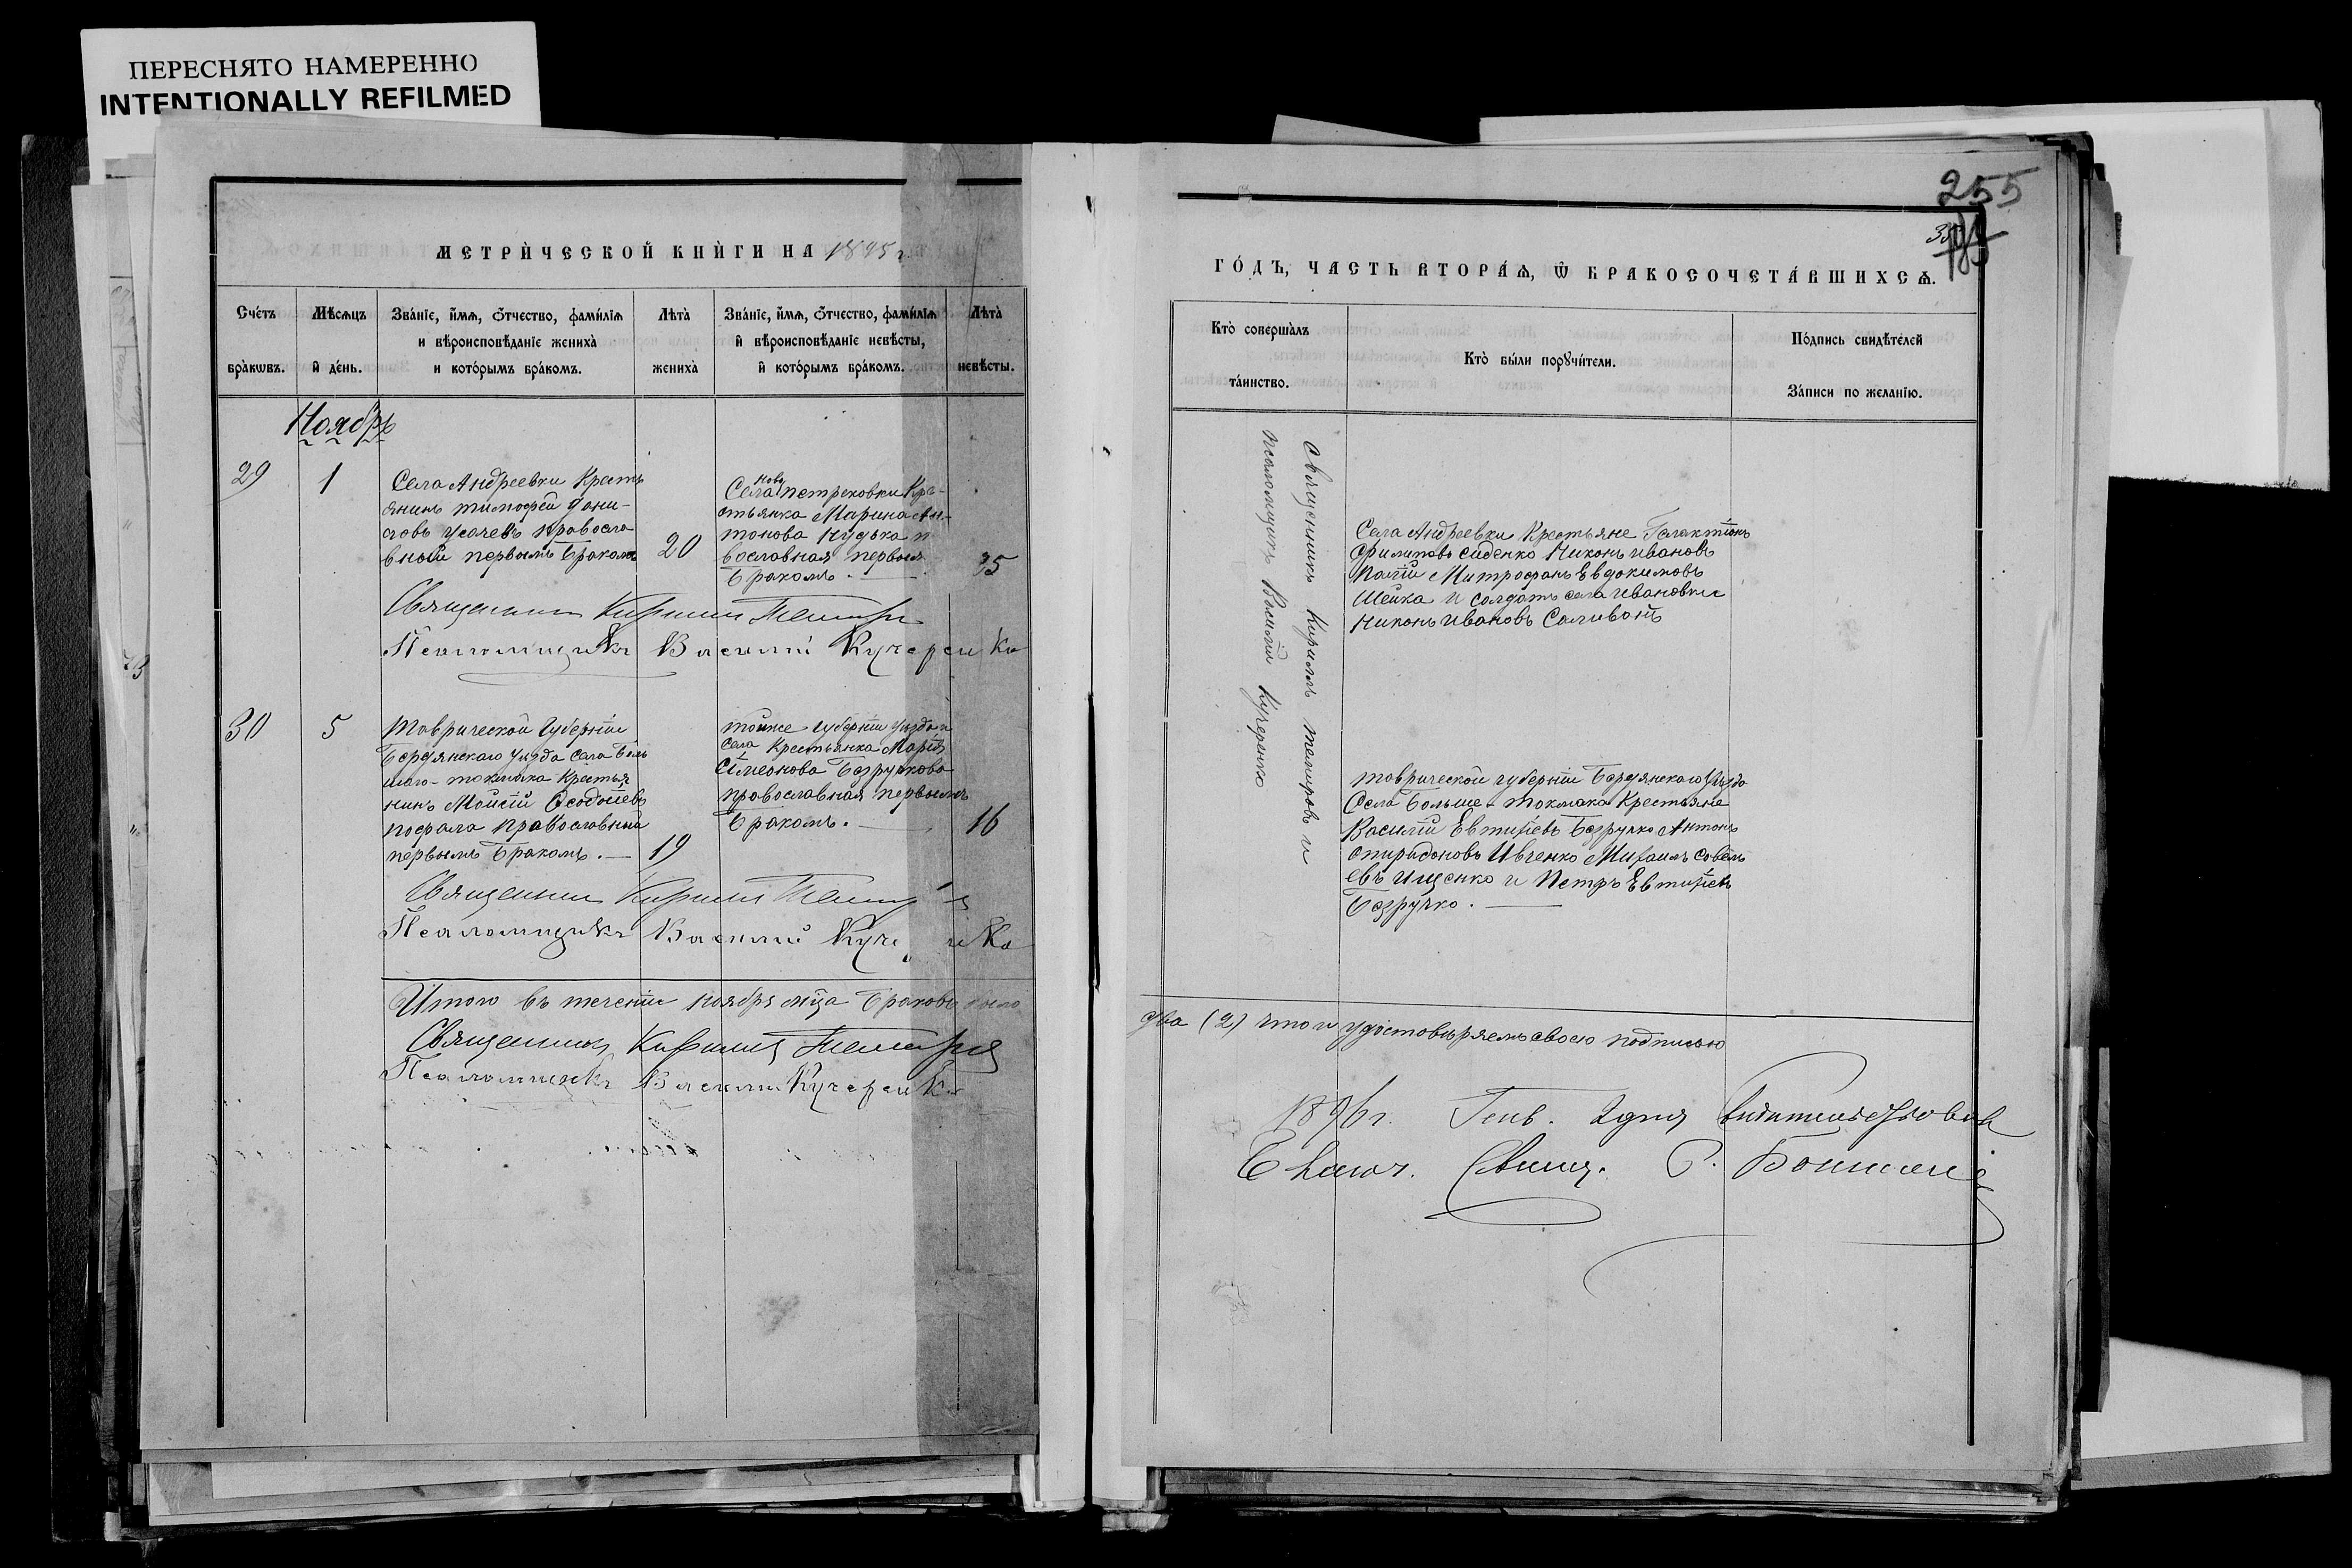 ПЕРЕСНЯТО НАМЕРЕННО
INTENTIONALLY REFILMED
МЕТРИ́ЧЕСКОЙ КНИ́ГИ НА 1895 г.
Сче́тъ бра́кѡвъ.
Мѣ́сѧцъ й де́нь.
Зва́нїе, и҆́мѧ, ѻ҆́тчество, фами́лїѧ
и вѣроисповѣ́данїе жениха̀
и кото́рымъ бра́комъ.
Лѣта̀ жениха̀
Зва́нїе, и҆́мѧ, ѻ҆́тчество, фами́лїѧ
й вѣроисповѣ́данїе невѣ́сты,
й кото́рымъ бра́комъ.
Лѣта̀ невѣ́сты.
Ноябрь
29
1
Села Андреевки Кресть
янинъ Тимофей Дани-
ловъ Усачевъ Правосла
вный первымъ бракомъ
20
Села Ново
петриковки Кре-
стьянка Марина Ан-
тонова
вославная первым
бракомъ.
Священник Кирилл
Псаломщикъ Василий Кучеренко
30
5
Таврической Губернии
Бердянскаго уѣзда села Боль
шаго-Токмака Крестья
нинъ Моисей Ѳеодосіевъ
православный
первымъ бракомъ.
19
тойже губернии уѣзда и
села Крестьянка Марія
Сімеонова Безручкова
православная первымъ
бракомъ.
16
Священник Кирилл
Псаломщикъ Василий
Итого въ теченіи ноября мца браковъ было
Священник Кирилл
Псаломщикъ Василий Кучеренко
255
ГО́ДЪ, ЧАСТЬ ВТОРА́Ѧ, Ѽ БРАКОСОЧЕТА́ВШИХСѦ.
Кто̀ соверша́лъ
та́инство.
Кто̀ бы́ли порꙋчи́тели.
По́дпись свидѣ́телей
За́писи по желанїю.
Священникъ Кириллъ Темировъ и
псаломщикъ Василій Кучеренко
Села Андреевки Крестьяне Галактіонъ
Филиповъ Сиденко Никонъ Ивановъ
Палій Митрофанъ Евдокимовъ
Шейка и солдатъ села Ивановки
Никонъ Ивановъ Саливонъ
Таврической губерніи Бердянскаго уѣзда
Села Больше-Токмака Крестьяне
Василій Евтихіевъ Безручко Антонъ
Спиридоновъ Ивченко Михаилъ Савель
евъ Ищенко и Петръ Евтихіевъ
Безручко.
два (2) что и удостовѣряемъ своею подписью
1896 г. Генв. 2 дня